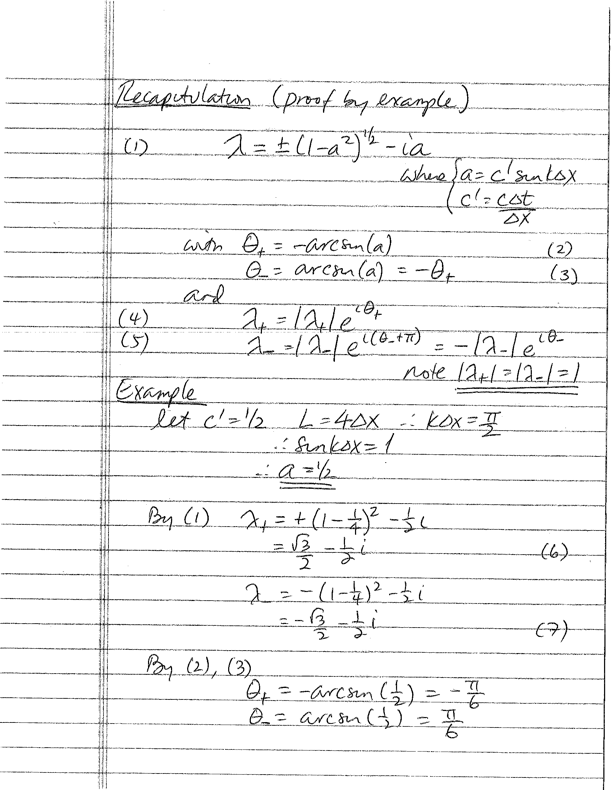 Recapitulation (proof by example)
(1) λ = ±(1-a²)^1/2 - ia
where { a = c' sin kΔx
{ c' = cΔt/Δx
with θ₊ = -arcsin(a) (2)
θ₋ = arcsin(a) = -θ₊ (3)
and
(4) λ₊ = |λ₊| e^{iθ₊}
(5) λ₋ = |λ₋| e^{i(θ₋+π)} = -|λ₋| e^{iθ₋}
note |λ₊| = |λ₋| = 1
Example
let c' = 1/2 L = 4Δx ∴ kΔx = π/2
∴ sin kΔx = 1
∴ a = 1/2
By (1) λ₊ = +(1 - 1/4)² - 1/2 i
= √3/2 - 1/2 i (6)
λ₋ = -(1 - 1/4)² - 1/2 i
= -√3/2 - 1/2 i (7)
By (2), (3)
θ₊ = -arcsin(1/2) = -π/6
θ₋ = arcsin(1/2) = π/6